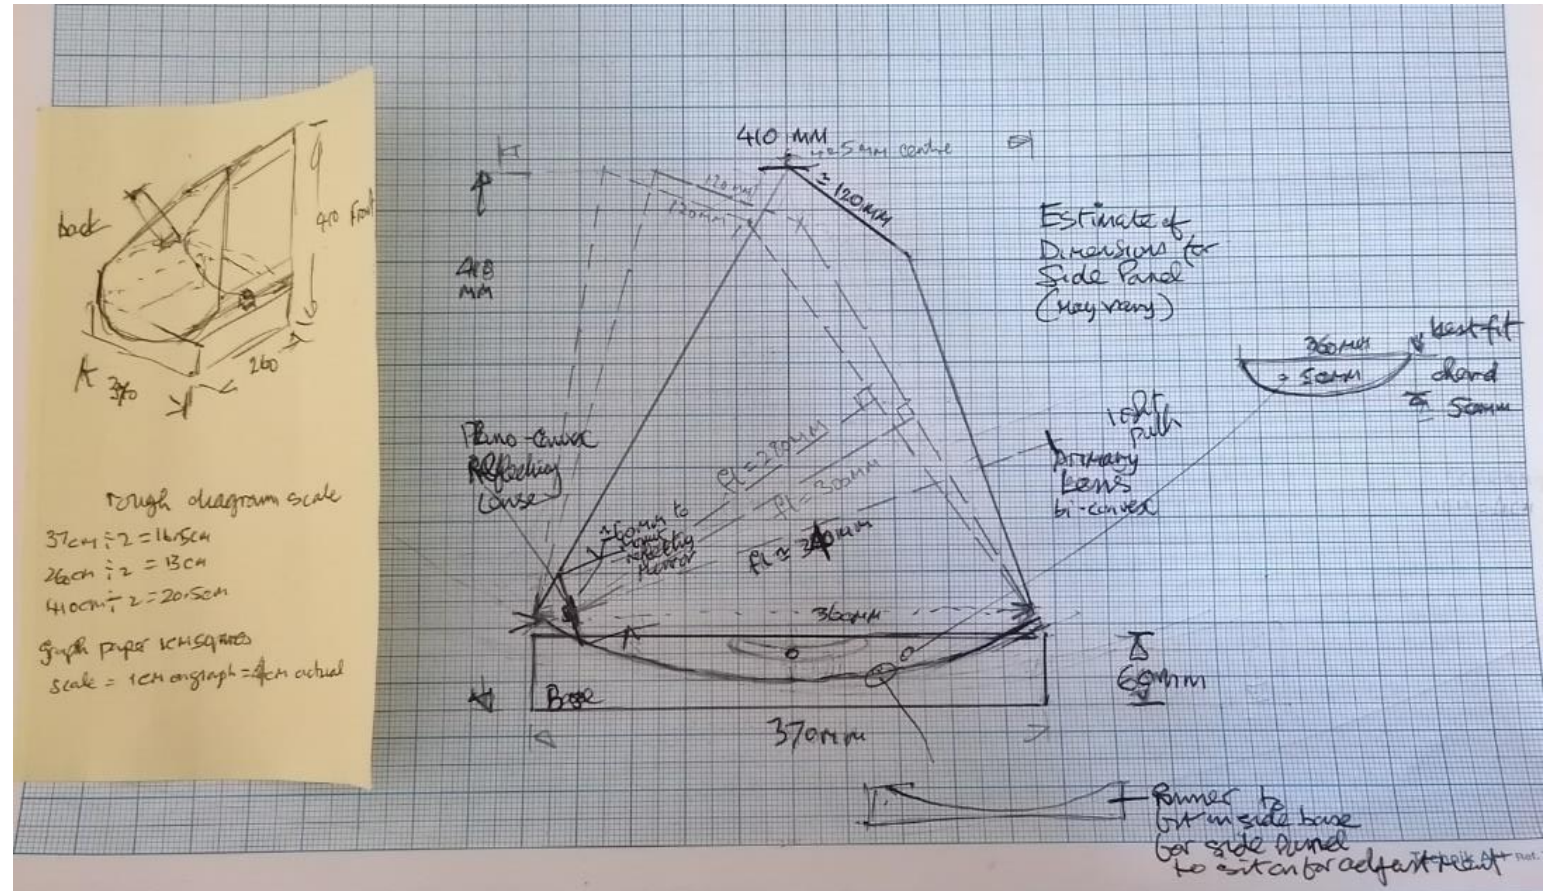 back
410 Front
370
260
rough diagram scale
37cm ÷ 2 = 18.5cm
26cm ÷ 2 = 13cm
410cm ÷ 2 = 20.5cm
graph paper 1cm squares
scale = 1cm on graph = 4cm actual
410 MM
5mm centre
120mm
120mm
≃ 120mm
410
MM
Estimate of
Dimensions for
Side Panel
(may vary)
360mm
best fit
50mm
chord
50mm
Plano-convex
Reflecting
Lense
light
path
Primary
Lens
bi-convex
fl = 280mm
fl = 300mm
fl ≃ 340mm
≃ 60mm to
reflecting
mirror
360mm
Base
60mm
370mm
Runner to
fit inside base
for side panel
to sit on for adjustment